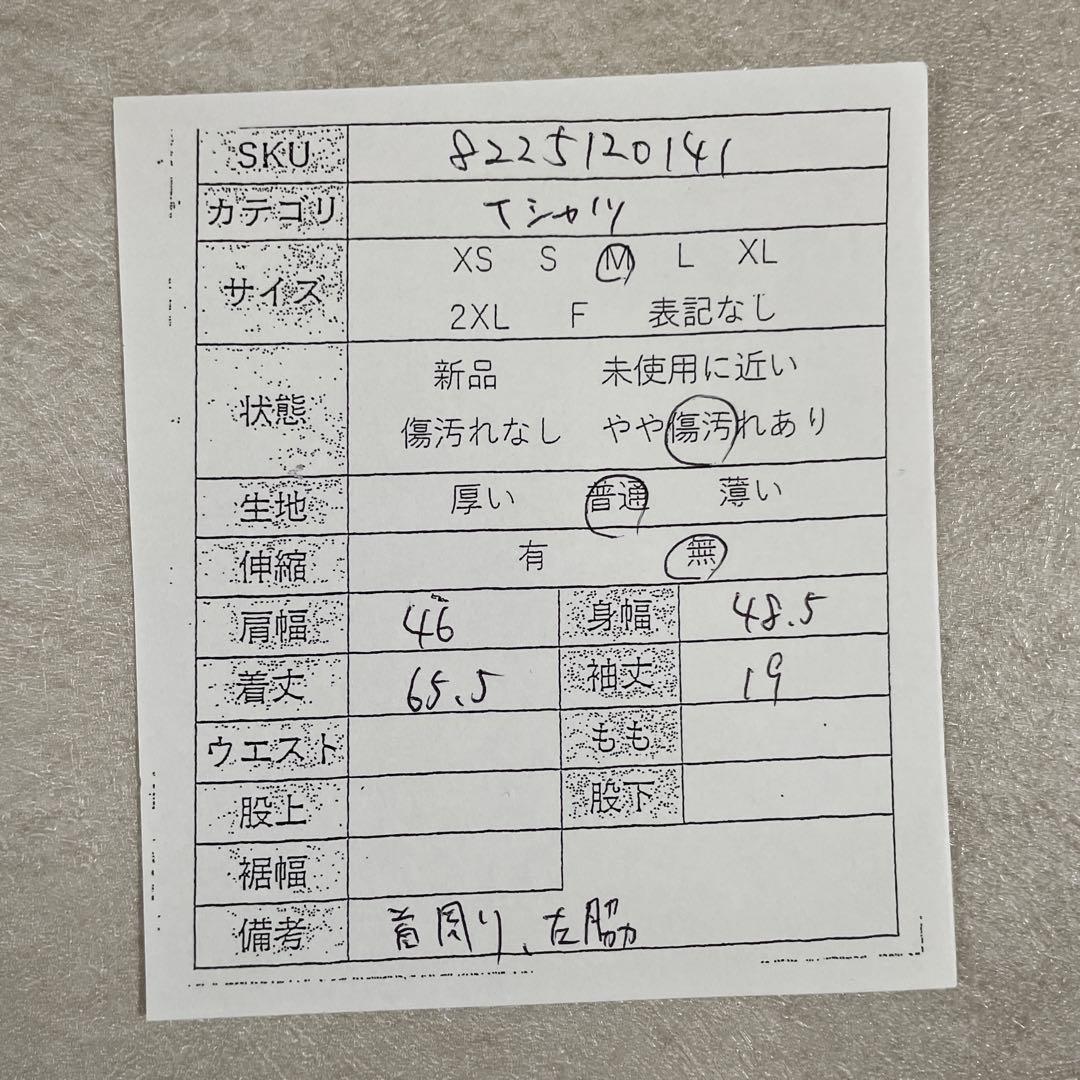 SKU 8225120141
カテゴリ Tシャツ
サイズ XS S M L XL
2XL F 表記なし
状態 新品 未使用に近い
傷汚れなし やや傷汚れあり
生地 厚い 普通 薄い
伸縮 有 無
肩幅 46 身幅 48.5
着丈 65.5 袖丈 19
ウエスト もも
股上 股下
裾幅
備考 首周り、左脇